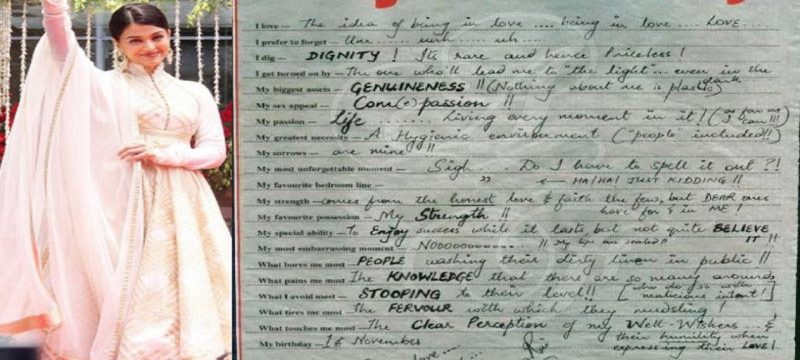 I love — The idea of being in love .... being in love .... LOVE...
I prefer to forget — Umm ...... uuh ..... uh.....
I dig — DIGNITY! Its rare and hence Priceless!
I get turned on by — The one who'll lead me to "the light"... even in the dark
My biggest assets — GENUINENESS!! (Nothing about me is plastic)
My sex appeal — Com(e)passion!!
My passion — Life ....... Living every moment in it! (as far as I can!!!)
My greatest necessity — A Hygienic environment ("people" included!!)
My sorrows — are mine!!
My most unforgettable moment — Sigh... Do I have to spell it out?!
My favourite bedroom line — " HA!HA! JUST KIDDING!!
My strength — comes from the honest love & faith the few, but DEAR ones have for & in ME!
My favourite possession — My Strength!!
My special ability — To Enjoy success while it lasts but not quite BELIEVE IT!!
My most embarrassing moment — NOoooooooo.... !! My lips are sealed!!
What bores me most — PEOPLE washing their dirty linen in public!!
What pains me most — The KNOWLEDGE that there are so many around
What I avoid most — STOOPING to their level!! [who do so with malicious intent!]
What tires me most — The FERVOUR with which they
What touches me most — The Clear Perception of my Well-Wishers & their humility when expressing their LOVE!
My birthday — 1st November